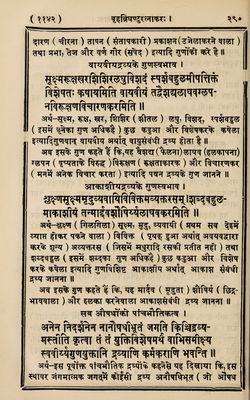 ( ११४२ ) बृहन्निघण्टुरत्नाकरः । २९०
दारण ( चीरना ) तापन ( संतापकारी ) प्रकाशन ( उजेलाकरने वाला )
तथा प्रभा, तेज और वर्ण गौर ( सपेद ) इत्यादि गुणोंकी करे हैं ॥
वायवीयद्रव्यके गुणस्वभाव ।
सूक्ष्मरूक्षखरशिशिरलघुविशदं स्पर्शबहुलमीषत्तिक्तं
विशेषतः कषायमिति वायवीयं तद्वैशद्यलाघवग्लप-
नविरूक्षणविचारणकरमिति ॥
अर्थ-सूक्ष्म, रूक्ष, खर, शिशिर ( शीतल ) लघु, विशद, स्पर्शबहुल
( इसमें स्पर्शका गुण अधिकहै ) कुछ कडुआ और विशेषकरके कषेला
इत्यादिगुणवाद वायवीय अर्थात् वायुसंबंधी द्रव्य होता है ॥
अब इसके गुण कहते हैं कि, यह वैशद्य ( फैलना ) लाघव ( हलकापना )
ग्लपन ( पुष्यताके विरुद्ध ) विरूक्षण ( रूक्षताकारक ) और विचारणकर
( मनमें अनेक विचार करता ) इत्यादि पवन द्रव्यके गुण जानने ॥
आकाशीयद्रव्यके गुणस्वभाव ।
श्लक्ष्णसूक्ष्ममृदुव्यवायिविविक्तमव्यक्तरसम्।शब्दबहुल-
माकाशीयं तन्मार्दवशौषिर्यलाघवकरमिति ॥
अर्थ-श्लक्ष्ण ( गिलगिला ) सूक्ष्म, मृदु, व्यवायी ( प्रथम सब देहमें
व्याप्त होकर पचने वाला ) विविक्त ( पृथक् हुआ अर्थात् अवयवद्वारा
करके शून्य ) अव्यक्तरस ( जिसमें मधुरादि रसकी प्रतीति नहीं ) तथा
शब्दबहुल ( इसमें शब्दका गुण अधिकहै ) कुछ कडुआ और विशेष
करके कषेला इत्यादि गुणविशिष्ट आकाशीय अर्थात् आकाश संबंधी
द्रव्य जानना ॥
अब इसके गुण कहते हैं कि, यह मार्दव ( मृदुता ) शौषिर्य ( छिद्र-
भाववाला ) और हलका करनेवाला आकाशसंबंधी द्रव्य जानना ॥
सब औषधोंको पांचभौतिकत्व ।
अनेन निदर्शनेन नानौषधीभूतं जगति किञ्चिद्द्रव्य-
मस्तीति कृत्वा तं तं युक्तिविशेषमर्थं वाभिसमीक्ष्य
स्ववीर्यगुणयुक्तानि द्रव्याणि कर्मकराणि भवन्ति ॥
अर्थ-इस पूर्वोक्त पांचभौतिक द्रव्योंके कहनेसे यह दिखाया कि, इस
स्थावर जंगमात्मक जगत्में कोईसी द्रव्य अनौषधिभूत ( जो औषध